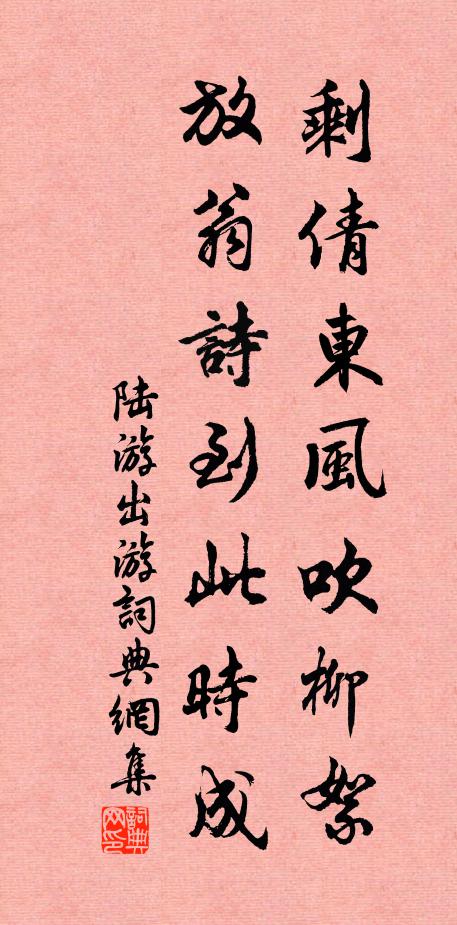 剩倩東風吹柳絮
放翁詩到此時成
陸游出游詞典網集
詞典網印